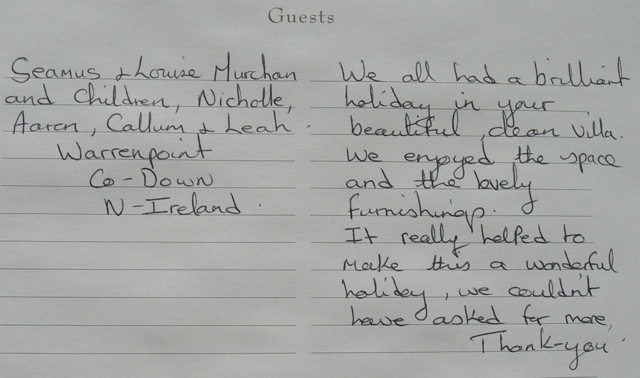 Guests
Seamus & Louise Murchan
and Children, Nicholle,
Aaron, Callum & Leah.
Warrenpoint
Co-Down
N-Ireland.
We all had a brilliant
holiday in your
beautiful, clean villa.
We enjoyed the space
and the lovely
furnishings.
It really helped to
make this a wonderful
holiday, we couldn't
have asked for more,
Thank-you.